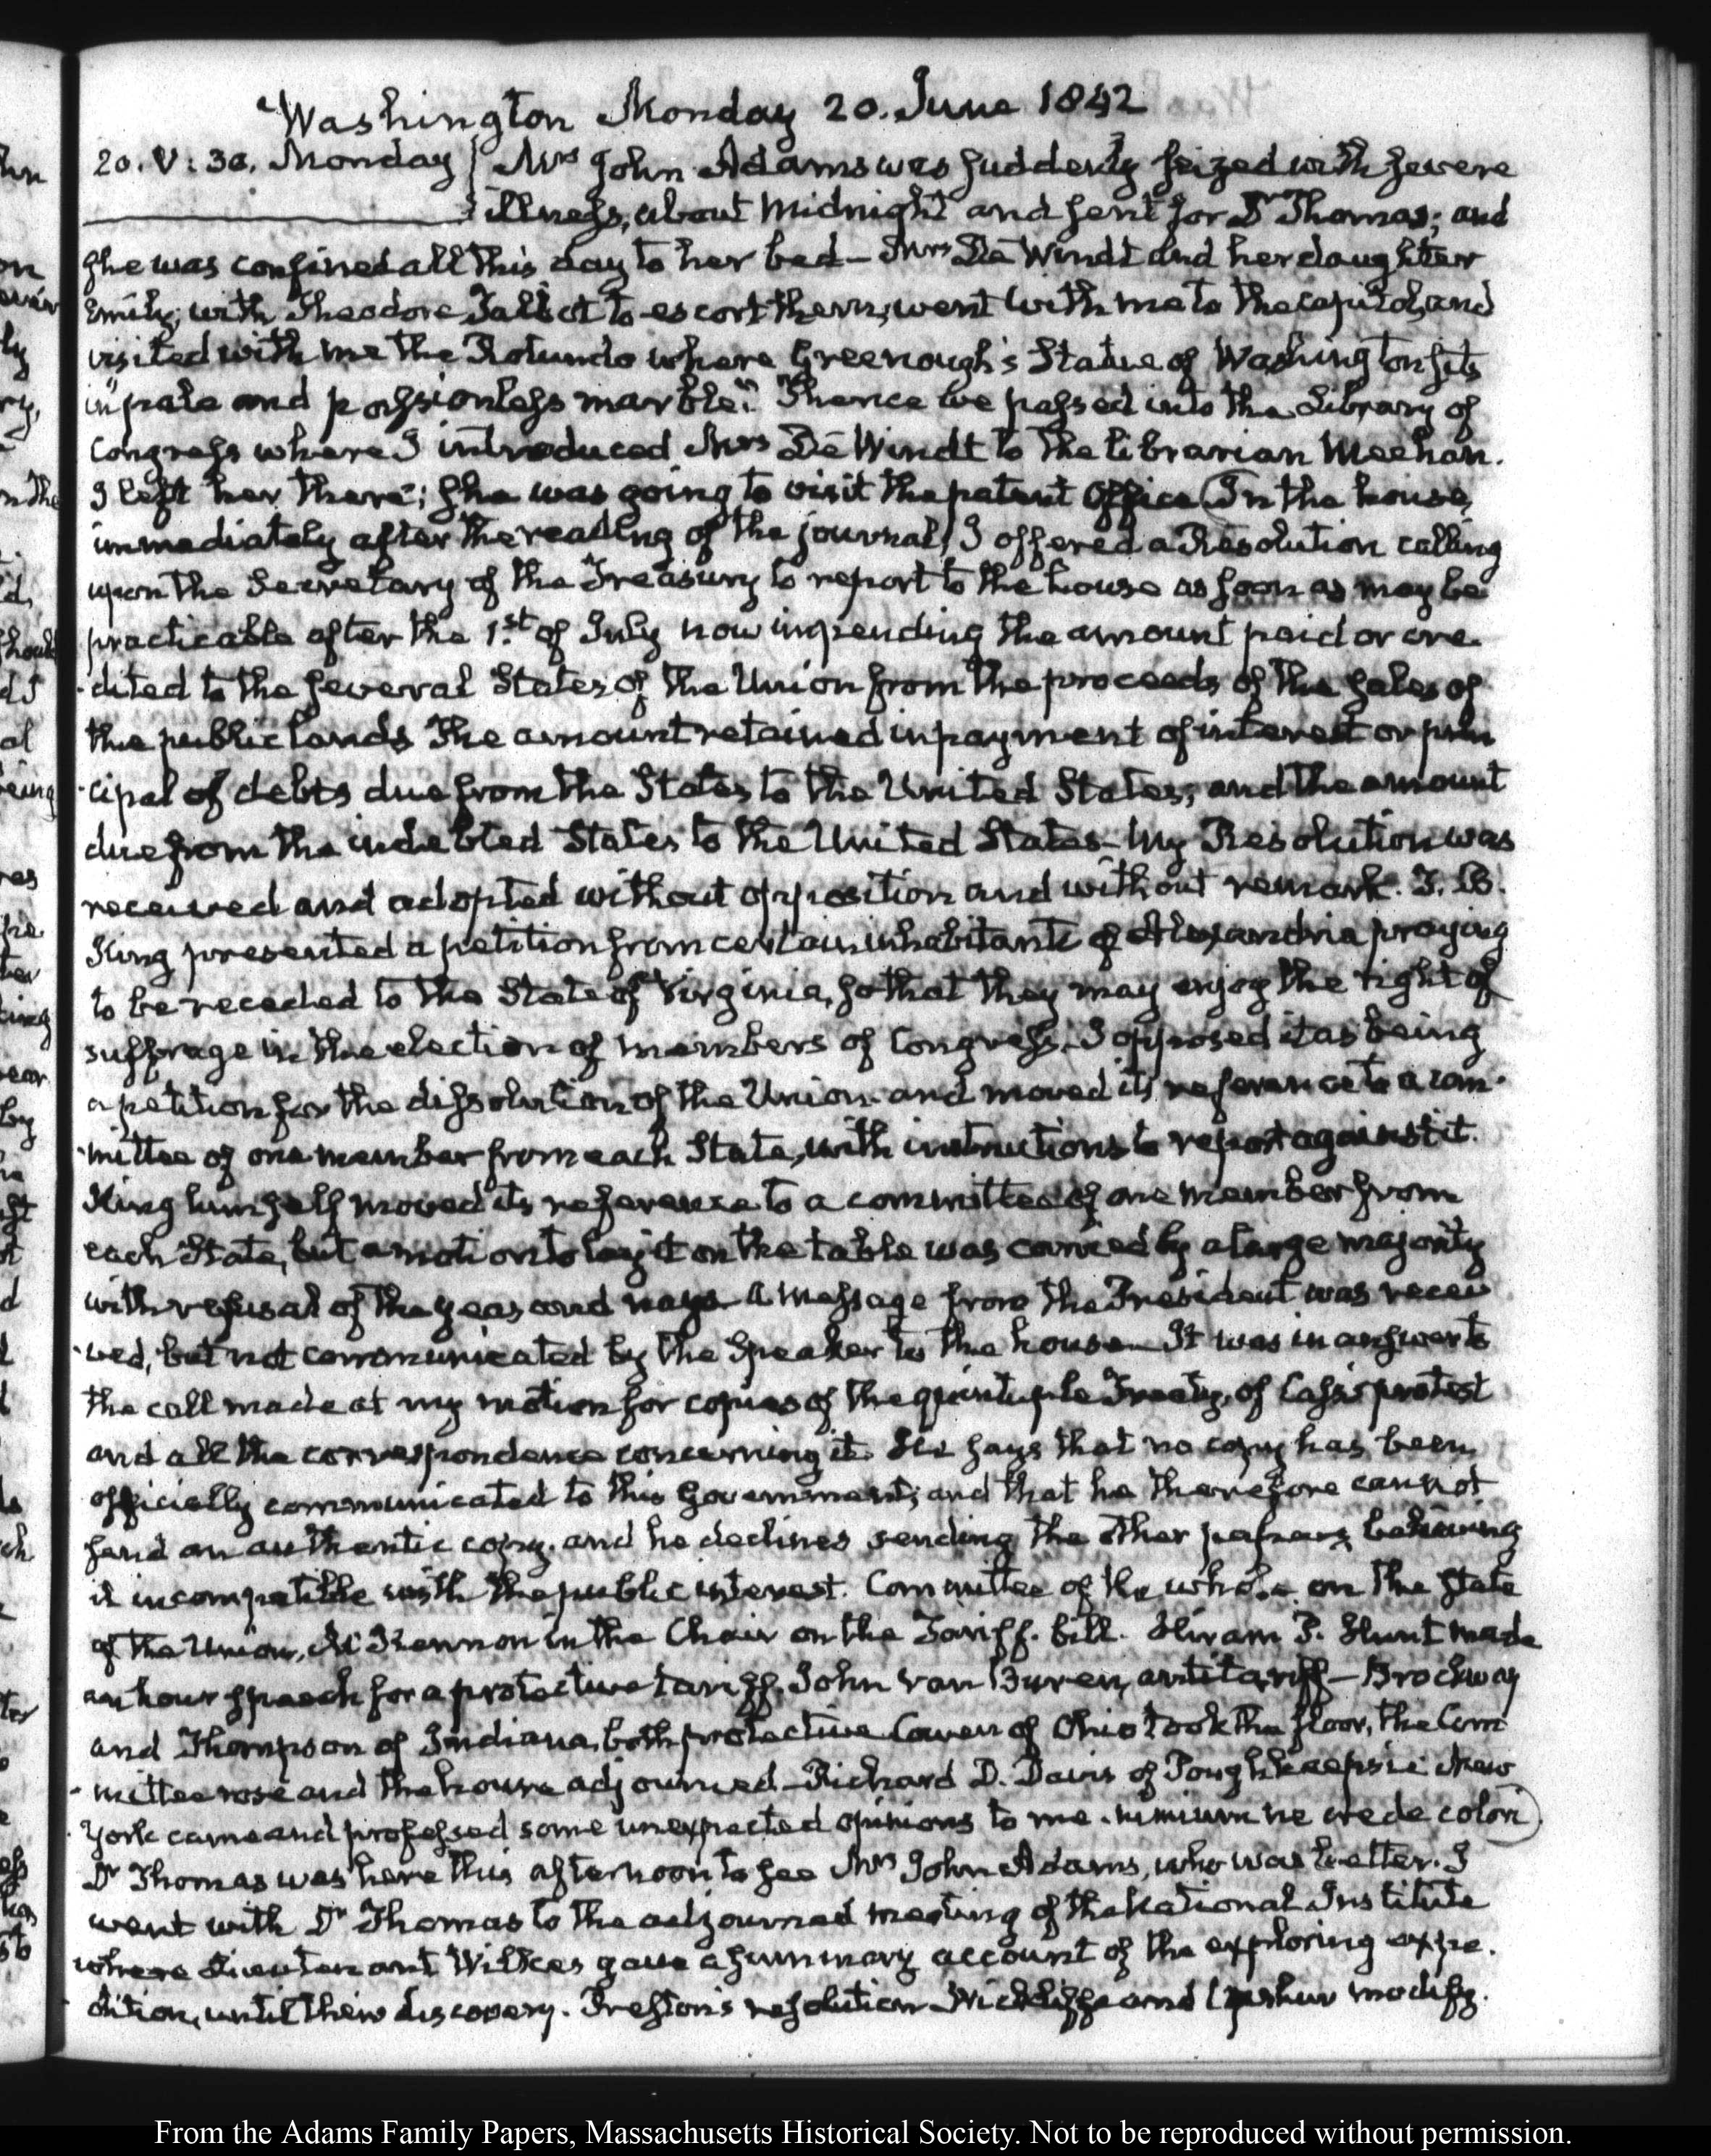 Washington Monday 20. June 1842
20. V: 30. Monday Mrs John Adams was suddenly seized with severe
illness, about midnight and sent for Dr Thomas; and
she was confined all this day to her bed – Mrs De Windt and her daughter
Emily; with Theodore Talbot to escort them, went with me to the capitol, and
visited with me the Rotundo where Greenough's Statue of Washington sits
in "pale and passionless marble." Thence we passed into the Library of
Congress where I introduced Mrs De Windt to the librarian Meehan.
I left her there; she was going to visit the patent Office (In the house,
immediately after the reading of the journal, I offered a Resolution calling
upon the Secretary of the Treasury to report to the house as soon as may be
practicable after the 1.st of July now impending the amount paid or cre-
-dited to the several States of the Union from the proceeds of the sales of
the public lands The amount retained in payment of interest or prin
-cipal of debts due from the States to the United States; and the amount
due from the indebted States to the United States – My Resolution was
received and adopted without opposition and without remark. T. B.
King presented a petition from certain inhabitants of Alexandria praying
to be receded to the State of Virginia, so that they may enjoy the right of
suffrage in the election of members of Congress. I opposed it as being
a petition for the dissolution of the Union and moved its reference to a com-
-mittee of one member from each State, with instructions to report against it.
King himself moved its reference to a committee of one member from
each State, but a motion to lay it on the table was carried by a large majority
with refusal of the yeas and nays – A Message from the President was recei
-ved, but not communicated by the Speaker to the house – It was in answer to
the call made at my motion for copies of the quintuple Treaty, of Cass's protest
and all the correspondence concerning it. He says that no copy has been
officially communicated to this Government; and that he therefore cannot
send an authentic copy. and he declines sending the other papers believing
it incompatible with the public interest. Committee of the whole on the State
of the Union, McKennon in the Chair on the Tariff. bill. Hiram P. Hunt made
an hour speech for a protective tariff, John Van Buren, antitariff – Brockway
and Thompson of Indiana, both protective Cowen of Ohio took the floor, the Com
-mittee rose and the house adjourned – Richard D. Davis of Poughkeepsie New
York came and professed some unexpected opinions to me. nimium ne crede colori)
Dr Thomas was here this afternoon to see Mrs John Adams, who was better. I
went with Dr Thomas to the adjourned meeting of the National Institute
where Lieutenant Wilkes gave a summary account of the exploring expe-
-dition, until their discovery. Preston's resolution Wickliffe and Upshur modify.